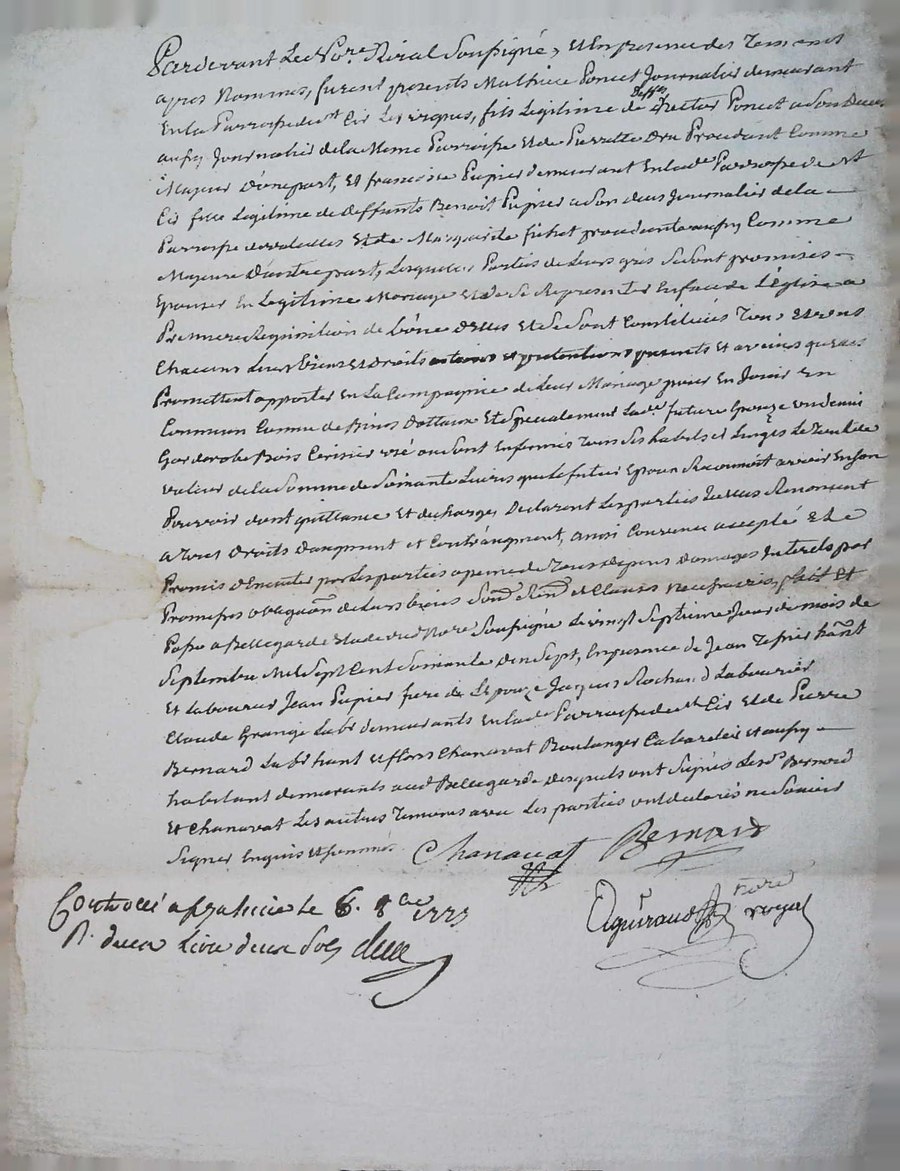 Pardevant Le No.re Roïal Soussigné, et En presence des Temoins
apres Nommes, furent presents Mathieu Poncet Journalier demeurant
En la Parroisse de st Cir Les vignes, fils Legitime de deffs. Poncet a Son vivant
aussy Journalier de la Meme Parroisse Et de Pierrette Dru Procedant Comme
Majeur D'une part, Et francoise Pupier demeurant En lad.e Parroisse de st
Cir fille Legitime de deffunts Benoit Pupier a Son vivant Journalier de la
Parroisse de valeilles Et de Marguerite fichet procedante aussy Comme
Majeure D'autre part, Lesquelles Parties de Leurs grés Se Sont promises
Epouser En Legitime Mariage Et de Se Representer En face de L'Eglise a
Premiere Requisition de L'une d'elles Et Se Sont Constitués Tous Et uns
Chacuns Leurs biens Et droits presents Et avenir que
Promettent apporter En La Compagnie de Leur Mariage pour En Jouir En
Commun Comme de Biens Dottaux Et Specialement La d.e future Epouze un demi
Garderobe Bois Cerisier ou Sont Enfermés Tous Ses habits et Linges Le Tout de
valeur de la Somme de Soixante Livres que le futur Epoux Reconnoit avoir En Son
Pouvoir dont quittance Et decharge, Declarant Les parties qu'elles Renoncent
a Tous Droits d'augment et Contraugment, ainsi Convenu accepté Et
Promis d'Executer par Les parties a peine de Tous depens domages Interets par
Promesses obligaon de Leurs biens Soum. Renon. et Clauses Necessaires, fait et
Passé a Bellegarde Etude du d. No.re Soussigné Le vingt Septieme Jour du mois de
Septembre Mil Sept Cent Soixante dix Sept, En presence de Jean habitant
Et Laboureur Jean Pupier frere de L'Epouze Jacques Rochand Labourier
Claude Grange Lab.r demeurants En lad.e Parroisse de st Cir Et de Pierre
Bernard Lab.r hant Chanavat Boulanger Cabaretier Et aussy
habitant demeurants aud. Bellegarde desquels ont Signés Les d. Bernard
Et Chanavat Les autres Temoins avec Les parties ont declarés ne Scavoir
Signer Enquis Et Sommés
Chanavat Bernard
Controllé a le 6. 8bre 1777
R. deux Livre deux Sols
no.re royal